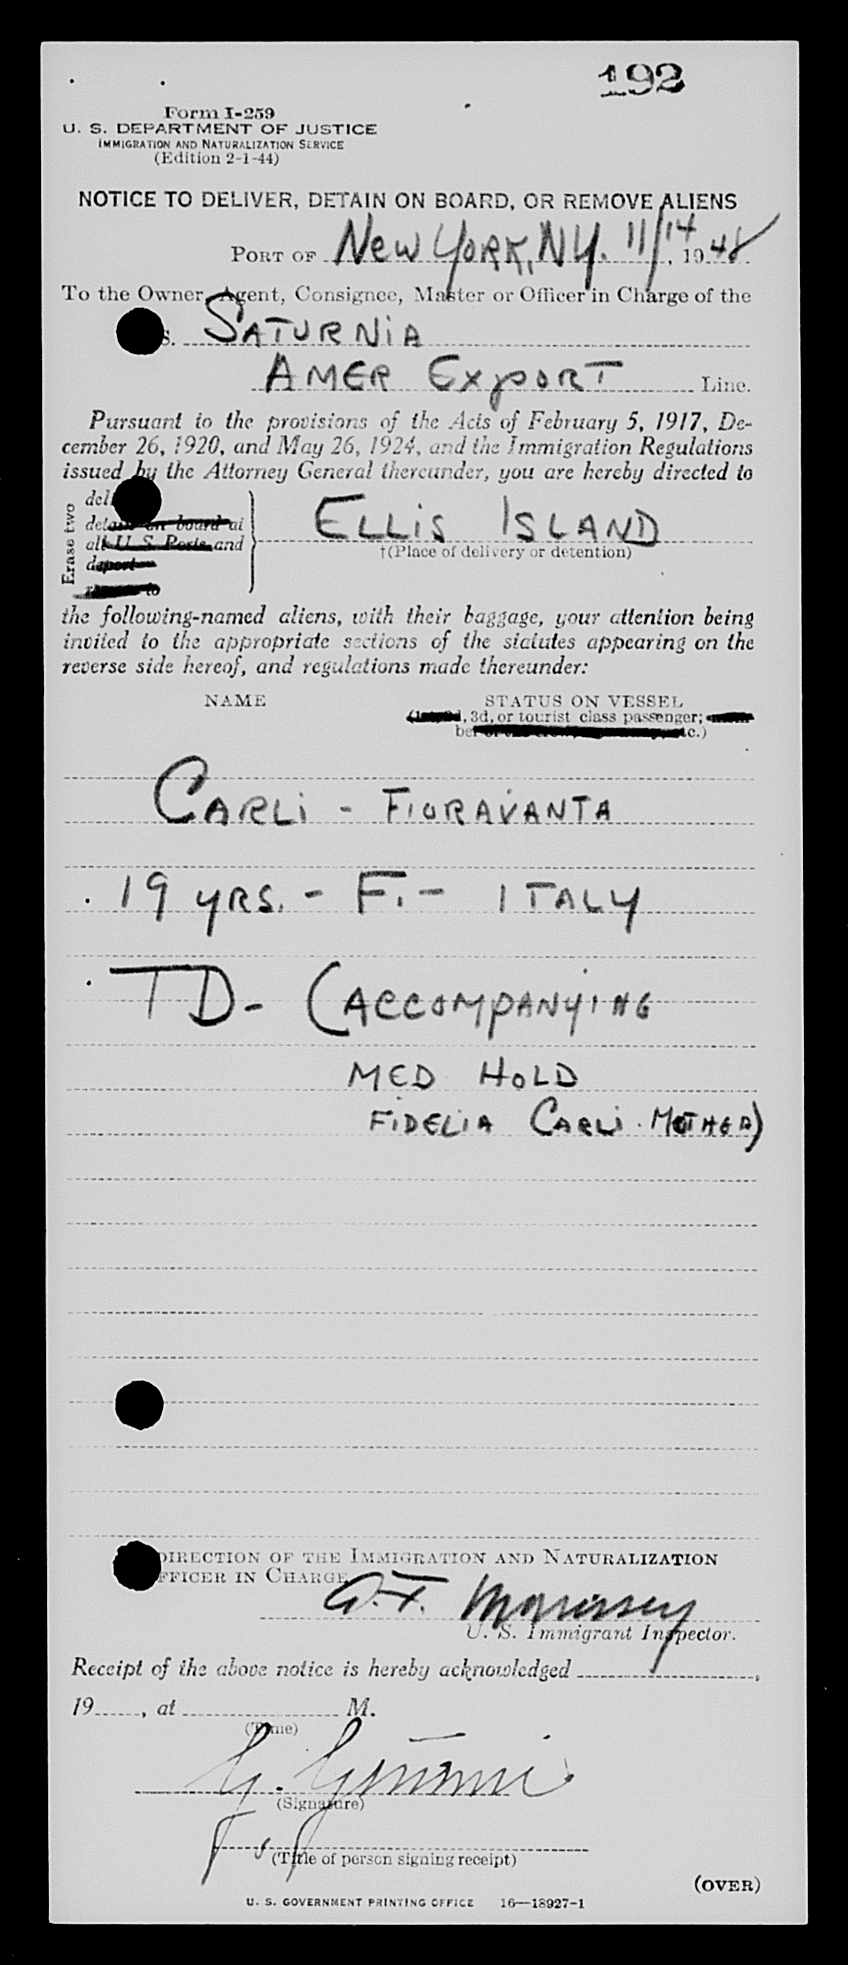 192
Form I-259
U. S. DEPARTMENT OF JUSTICE
IMMIGRATION AND NATURALIZATION SERVICE
(Edition 2-1-44)
NOTICE TO DELIVER, DETAIN ON BOARD, OR REMOVE ALIENS
PORT OF New York, NY. 11/14, 1948
To the Owner, Agent, Consignee, Master or Officer in Charge of the
S. SATURNIA
AMER EXPORT Line.
Pursuant to the provisions of the Acts of February 5, 1917, De-
cember 26, 1920, and May 26, 1924, and the Immigration Regulations
issued by the Attorney General thereunder, you are hereby directed to
Erase two
del
detain on board at
all U. S. Ports and
deport
to
ELLIS ISLAND
†(Place of delivery or detention)
the following-named aliens, with their baggage, your attention being
invited to the appropriate sections of the statutes appearing on the
reverse side hereof, and regulations made thereunder:
NAME STATUS ON VESSEL
3d, or tourist class passenger;
etc.)
CARLI - FIORAVANTA
19 YRS. - F. - ITALY
TD - (ACCOMPANYING
MED HOLD
FIDELIA CARLI - MOTHER)
DIRECTION OF THE IMMIGRATION AND NATURALIZATION
OFFICER IN CHARGE
U. S. Immigrant Inspector.
Receipt of the above notice is hereby acknowledged
19......, at M.
(Time)
(Signature)
(Title of person signing receipt)
(OVER)
U. S. GOVERNMENT PRINTING OFFICE 16—18927-1